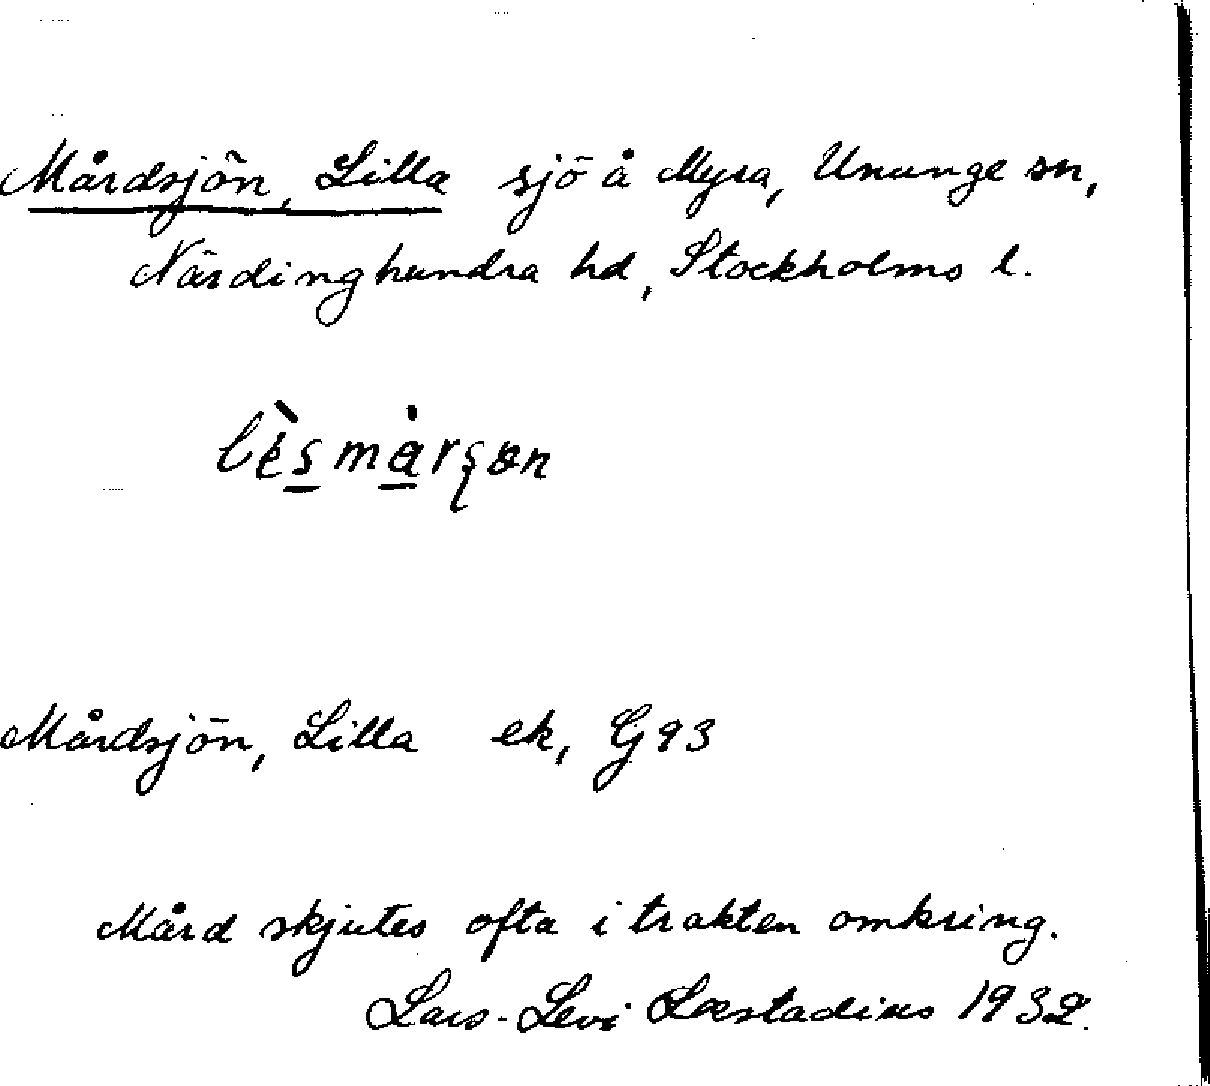 Mårdsjön, Lilla sjö å Myra, Ununge sn,
Närdinghundra hd, Stockholms l.
Mårdsjön, Lilla ek, Gj 93
Mård skjutes ofta i trakten omkring.
Lars-Levi Læstadius 1932.